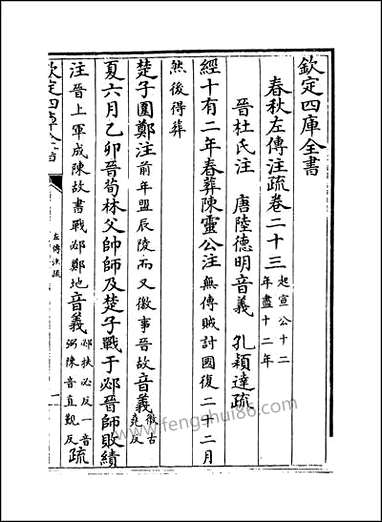 欽定四庫全書
春秋左傳注疏卷二十三起宣公十二年盡十二年
晉杜氏注　唐陸德明音義　孔穎達疏
經十有二年春葬陳靈公注無傳賊討國復二十二月
然後得葬
楚子圍鄭注前年盟辰陵而又徼事晉故音義徼古堯反
夏六月乙卯晉荀林父帥師及楚子戰于邲晉師敗績
注晉上軍成陳故書戰邲鄭地音義邲扶必反一音弼陳音直覲反疏
欽定四庫全書
左傳注疏
一
www.fengshui86.com